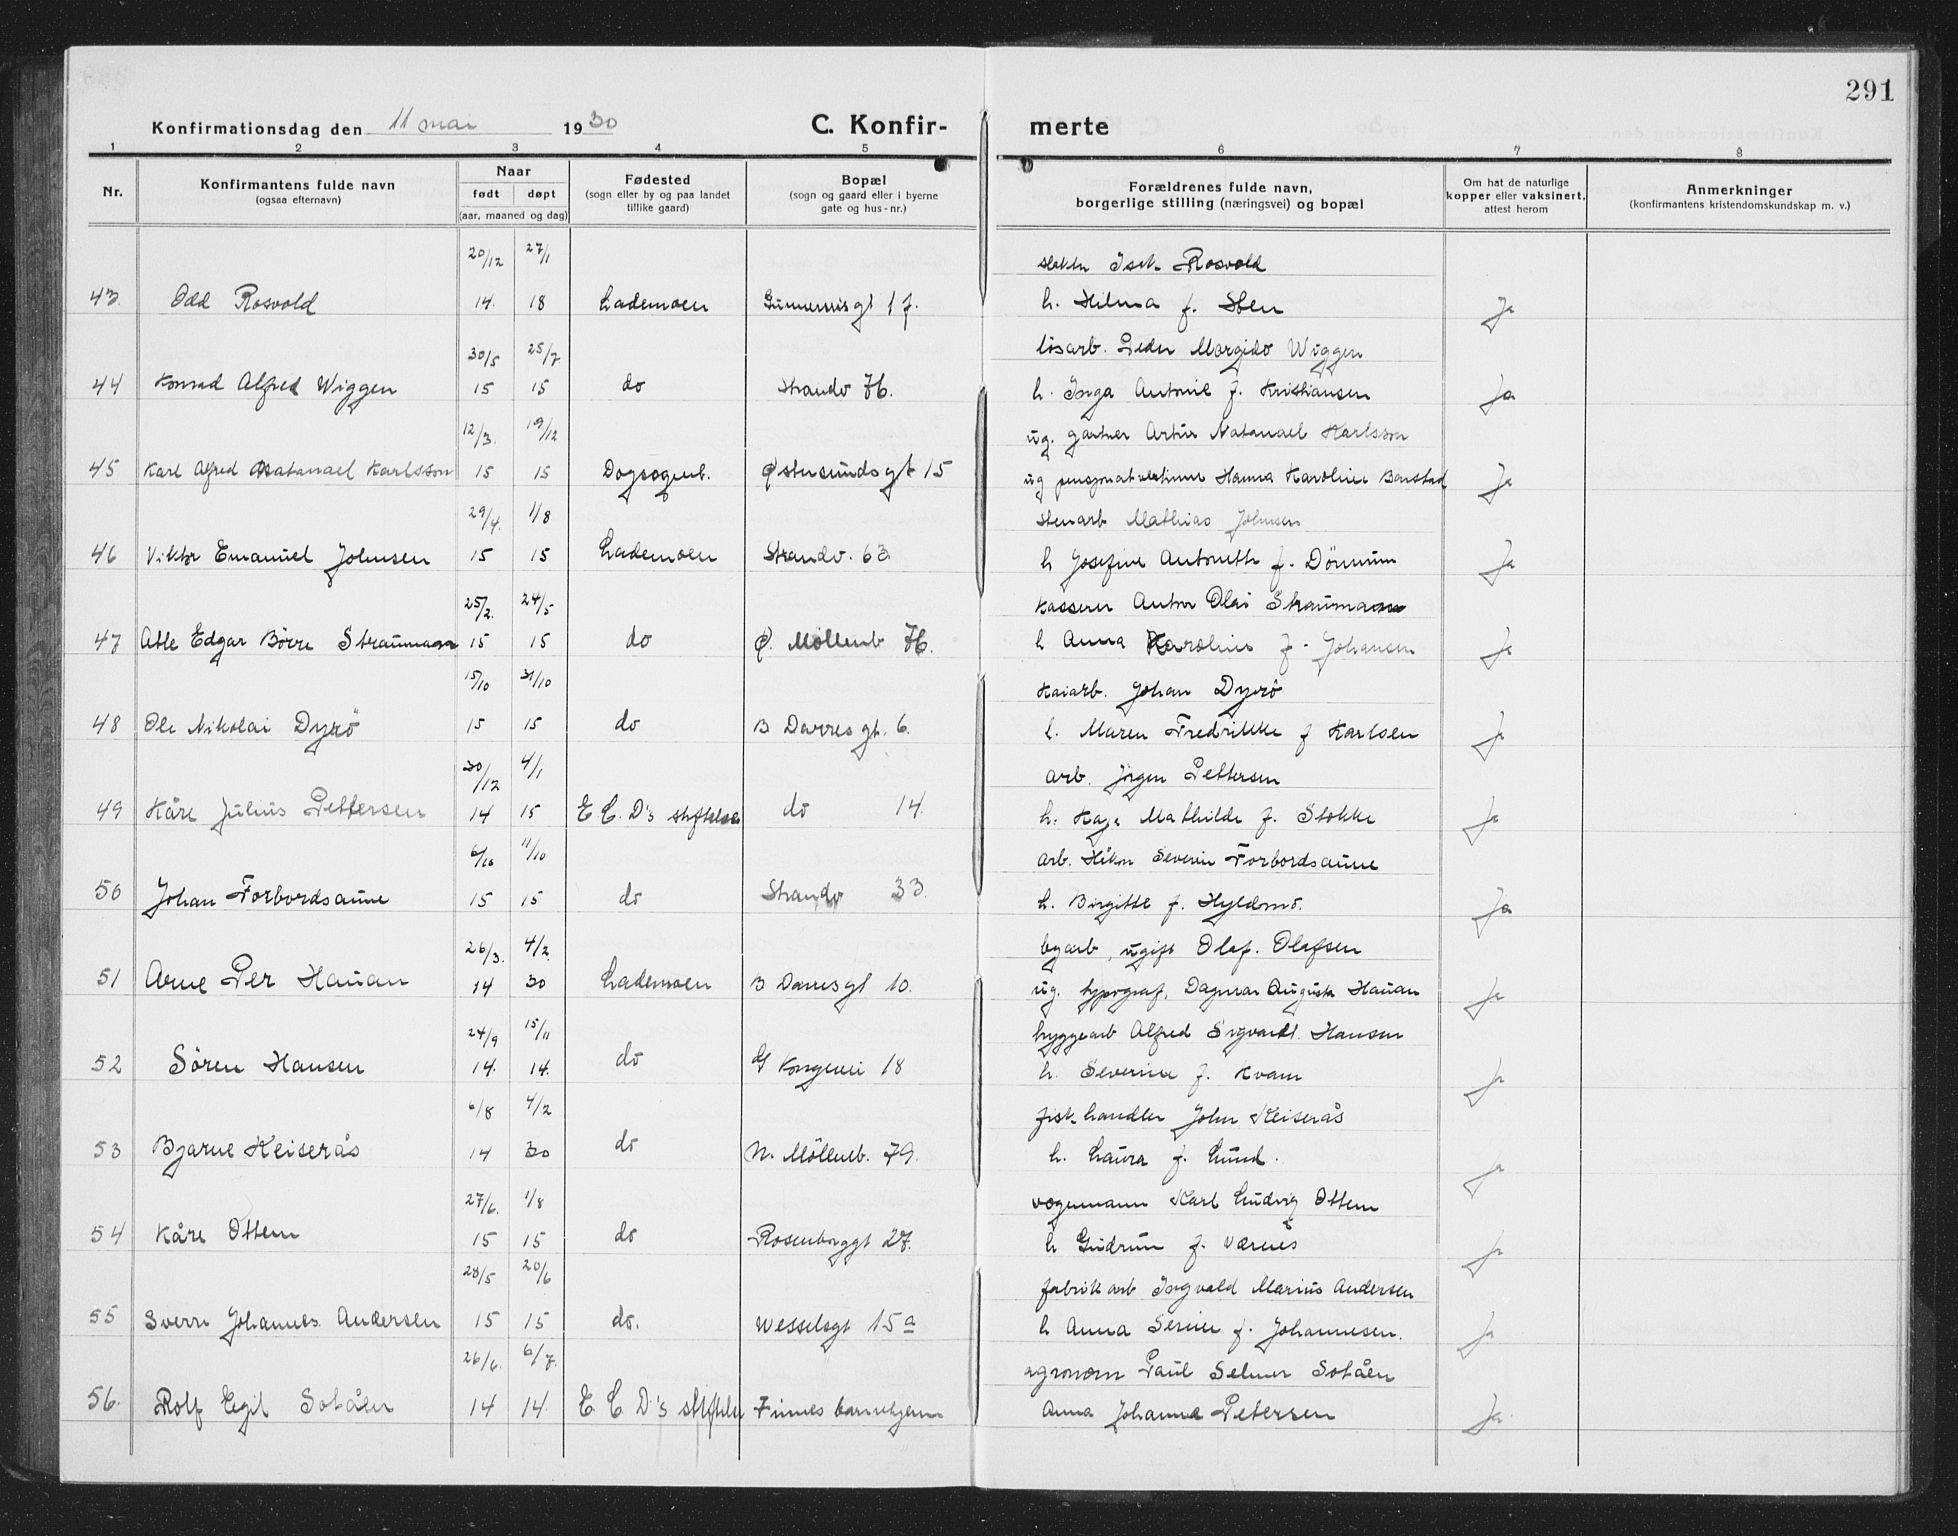 291
Konfirmationsdag den 11 mai 1930 C. Konfir- merte
1 2 3 4 5 6 7 8
Nr. Konfirmantens fulde navn (ogsaa efternavn) Naar født døpt (aar, maaned og dag) Fødested (sogn eller by og paa landet tillike gaard) Bopæl (sogn og gaard eller i byerne gate og hus-nr.) Forældrenes fulde navn, borgerlige stilling (næringsvei) og bopæl Om hat de naturlige kopper eller vaksinert, attest herom Anmerkninger (konfirmantens kristendomskundskap m. v.)
20/12 27/1 Rosvold
43 Odd Rosvold 14. 18 Lademoen 17. h. Hilma f. Sten Ja
30/5 25/7 løsarb. Peder Margido Wiggen
44 Konrad Alfred Wiggen 15 15 do Strandv 76. h. Inga Antonie f. Kristiansen Ja
12/3. 19/12 ug. gartner Artur Natanael Karlsson
45 Karl Alfred Natanael Karlsson 15 15 Østersundsgt 15 ug Hanna Karoline Ja
29/4. 1/8 stenarb Mathias Johnsen
46 Viktor Emanuel Johnsen 15 15 Lademoen Strandv. 63 h Josefine Antonette f. Dönnum Ja
25/2. 24/5 kasserer Anton Olai Straumann
47 Atle Edgar Börre Straumann 15 15 do Ø. Möllenb 76. h Anna Karoline f. Johansen Ja
15/10 31/10 kaiarb. Johan Dyrö
48 Ole Nikolai Dyrö 15 15 do B Darresgt. 6. h. Maren Fredrikke f Karlsen Ja
30/12 4/1 arb. Jörgen Pettersen
49 Kåre Julius Pettersen 14 15 E C. D's stiftelse do 14. h. Kaja Mathilde f. Stokke Ja
6/10 11/10 arb. Håkon Severin Forbordsaune
50 Johan Forbordsaune 15 15 do Strandv 33. h. Birgitte f. Hyldmo. Ja
26/3. 4/2. byarb, ugift Olaf. Olafsen
51 Arne Per Hauan 14 30 Lademoen B Darresgt 10. ug. typograf, Dagmar Augusta Hauan Ja
24/9 15/11 byggearb Alfred Sigvardt. Hansen
52 Sören Hansen 14. 14. do Gl Kongevei 18 h. Severine f. Kvam Ja
6/8 4/2 fiskhandler John Keiserås
53 Bjarne Keiserås 14 30 do N. Möllenb. 79. h. Laura f. Lund. Ja
27/6. 1/8 vognmann Karl Ludvig Ottem
54 Kåre Ottem 15 15 do Rosenborggt 27. h Gudrun f. Værnes Ja
28/5 20/6 fabrikarb Ingvald Marius Andersen
55 Sverre Johannes Andersen 15 15 do. Wesselsgt 15a h Anna Serine f. Johannesen. Ja
26/6. 6/7. agronom Paul Selmer Sotåen
56. Rolf Egil Sotåen 14 14. E. C D's stiftelse Finnes barnehjem Anna Johanna Petersen Ja